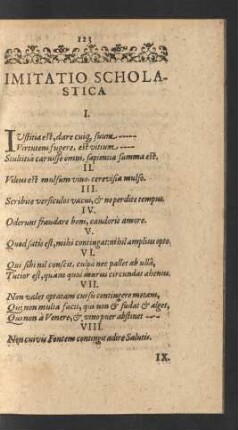 123
IMITATIO SCHOLA-
STICA
I.
IVstitia est, dare cuiq, suum -----
Virtutem fugere, est vitium -----
Stultitia caruisse omni, sapientia summa est.
II.
Vilius est mulsum vino: cerevisia mulso.
III.
Scribite versiculos vacui, & ne perdite tempus.
IV.
Oderunt fraudare boni, candoris amore.
V.
Quod satis est, mihi contingat: nihil amplius opto.
VI.
Qui sibi nil conscit, culpa nec pallet ab ulla,
Tutior est, quam quos murus circundat ahenus.
VII.
Non valet optatam cursu contingere metam,
Qui non multa facit, qui non & sudat & alget,
Qui non à Venere, & vino puer abstinet ---
VIII.
Non cuivis Fontem contingit adire Salutis.
IX.